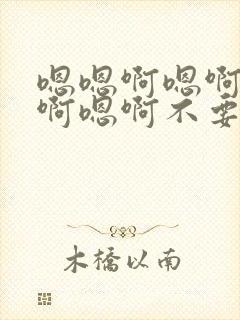 嗯嗯啊嗯啊
啊嗯啊不要
木橋以南